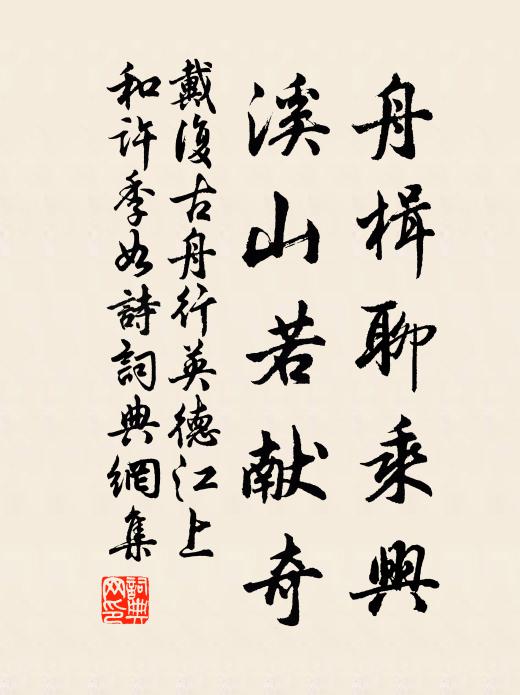 舟楫聊乘興
溪山若献奇
戴復古舟行英德江上
和許季如詩詞典網集
詞典网印